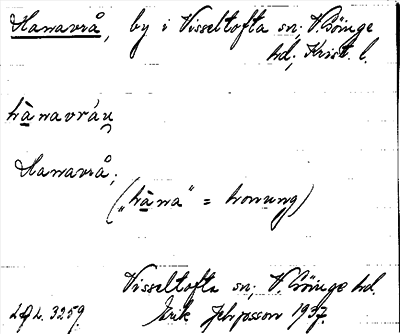 Hanavrå, by i Visseltofta sn; V. Göinge
hd; Krist. l.
hànavráu̯
Hanavrå;
(„hàna" = honung)
Visseltofta sn; V. Göinge hd.
Erik Jeppsson 1937.
3259.